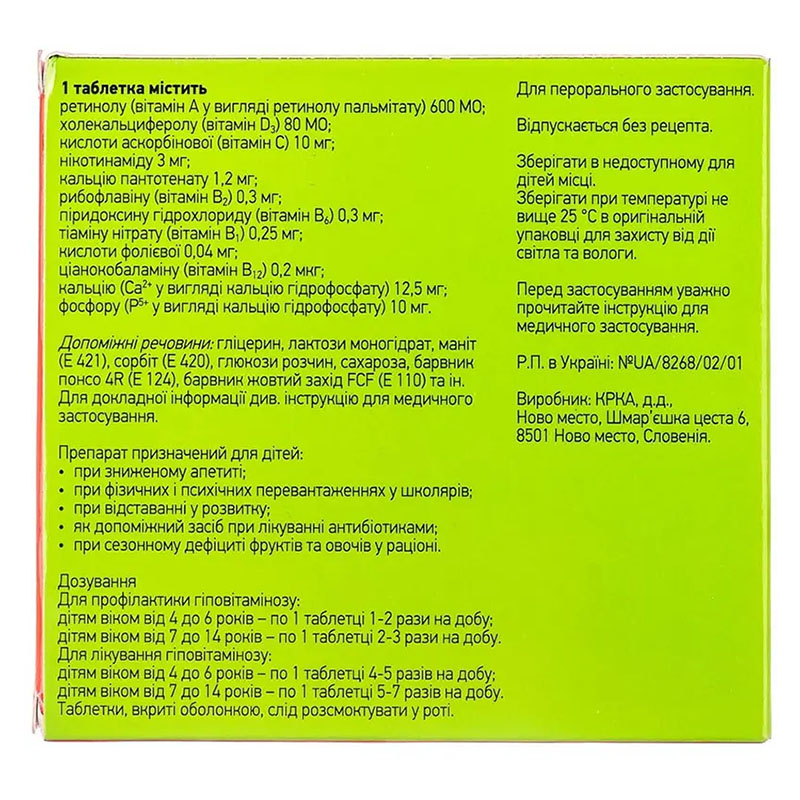 1 таблетка містить
ретинолу (вітамін А у вигляді ретинолу пальмітату) 600 МО;
холекальциферолу (вітамін D₃) 80 МО;
кислоти аскорбінової (вітамін С) 10 мг;
нікотинаміду 3 мг;
кальцію пантотенату 1,2 мг;
рибофлавіну (вітамін В₂) 0,3 мг;
піридоксину гідрохлориду (вітамін В₆) 0,3 мг;
тіаміну нітрату (вітамін В₁) 0,25 мг;
кислоти фолієвої 0,04 мг;
ціанокобаламіну (вітамін В₁₂) 0,2 мкг;
кальцію (Са²⁺ у вигляді кальцію гідрофосфату) 12,5 мг;
фосфору (Р⁵⁺ у вигляді кальцію гідрофосфату) 10 мг.
Допоміжні речовини: гліцерин, лактози моногідрат, маніт
(Е 421), сорбіт (Е 420), глюкози розчин, сахароза, барвник
понсо 4R (Е 124), барвник жовтий захід FCF (Е 110) та ін.
Для докладної інформації див. інструкцію для медичного
застосування.
Препарат призначений для дітей:
• при зниженому апетиті;
• при фізичних і психічних перевантаженнях у школярів;
• при відставанні у розвитку;
• як допоміжний засіб при лікуванні антибіотиками;
• при сезонному дефіциті фруктів та овочів у раціоні.
Дозування
Для профілактики гіповітамінозу:
дітям віком від 4 до 6 років – по 1 таблетці 1-2 рази на добу;
дітям віком від 7 до 14 років – по 1 таблетці 2-3 рази на добу.
Для лікування гіповітамінозу:
дітям віком від 4 до 6 років – по 1 таблетці 4-5 разів на добу;
дітям віком від 7 до 14 років – по 1 таблетці 5-7 разів на добу.
Таблетки, вкриті оболонкою, слід розсмоктувати у роті.
Для перорального застосування.
Відпускається без рецепта.
Зберігати в недоступному для
дітей місці.
Зберігати при температурі не
вище 25 °С в оригінальній
упаковці для захисту від дії
світла та вологи.
Перед застосуванням уважно
прочитайте інструкцію для
медичного застосування.
Р.П. в Україні: №UA/8268/02/01
Виробник: КРКА, д.д.,
Ново место, Шмар’єшка цеста 6,
8501 Ново место, Словенія.